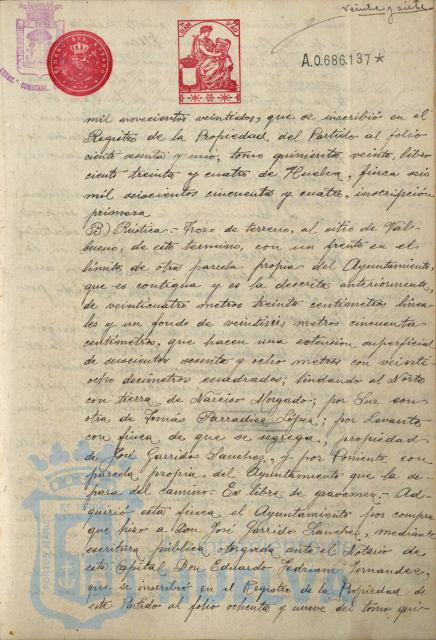 veinte y siete
A.0.686,137*
mil novecientos veintidos, que se inscribió en el
Registro de la Propiedad del Partido al folio
ciento sesenta y uno, tomo quinientos veinte, libro
ciento treinta y cuatro de Huelva, finca seis
mil seiscientos cincuenta y cuatro, inscripción
primera.
B) Rústica.- Trozo de terreno, al sitio de Val-
bueno, de este termino, con un frente en el
límite de otra parcela propia del Ayuntamiento,
que es contigua y es la descrita anteriormente,
de veinticuatro metros treinta centímetros linea-
les y un fondo de metros cincuenta
centímetros, que hacen una extensión superficial
de seiscientos sesenta y ocho metros con veinti
ocho decímetros cuadrados; lindando al Norte
con tierra de Narciso Morgado; por Sur con
otra de Tomás López; por Levante
con finca de que se segrega, propiedad
de José Garrido Sanchez, y por Poniente con
parcela propia del Ayuntamiento que la se-
para del camino. Es libre de gravamen.- Ad-
quirió esta finca el Ayuntamiento por compra
que hizo a Don José Garrido Sanchez, mediante
escritura pública otorgada ante el Notario de
esta Capital Don Eduardo Fedriani Fernandez,
que se inscribió en el Registro de la Propiedad de
este Partido al folio ochenta y nueve del tomo qui-